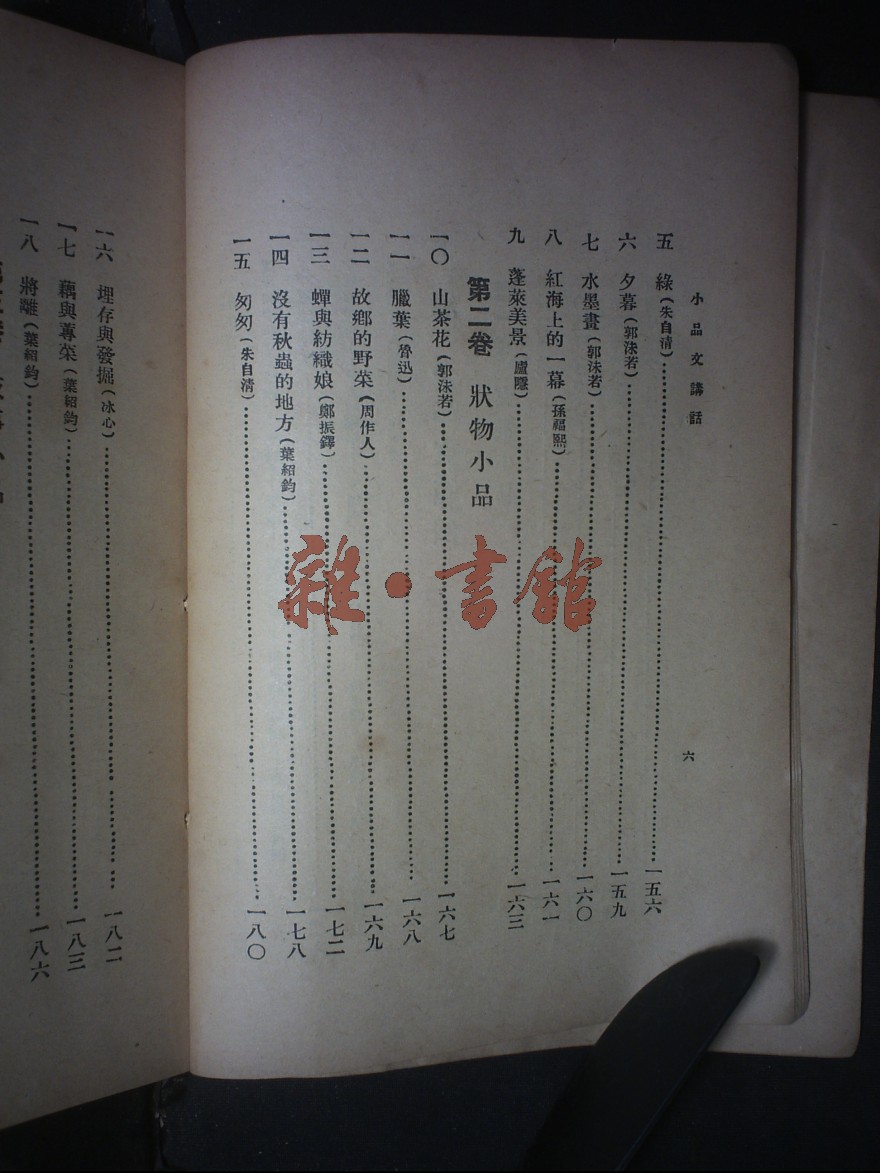 小品文講話
六
五 綠(朱自清)………一五六
六 夕暮(郭沫若)………一五九
七 水墨畫(郭沫若)………一六〇
八 紅海上的一幕(孫福熙)………一六一
九 蓬萊美景(廬隱)………一六三
第二卷 狀物小品
一〇 山茶花(郭沫若)………一六七
一一 臘葉(魯迅)………一六八
一二 故鄉的野菜(周作人)………一六九
一三 蟬與紡織娘(鄭振鐸)………一七二
一四 沒有秋蟲的地方(葉紹鈞)………一七八
一五 匆匆(朱自清)………一八〇
一六 埋存與發掘(冰心)………一八二
一七 藕與蓴菜(葉紹鈞)………一八三
一八 將離(葉紹鈞)………一八六
雜·書館